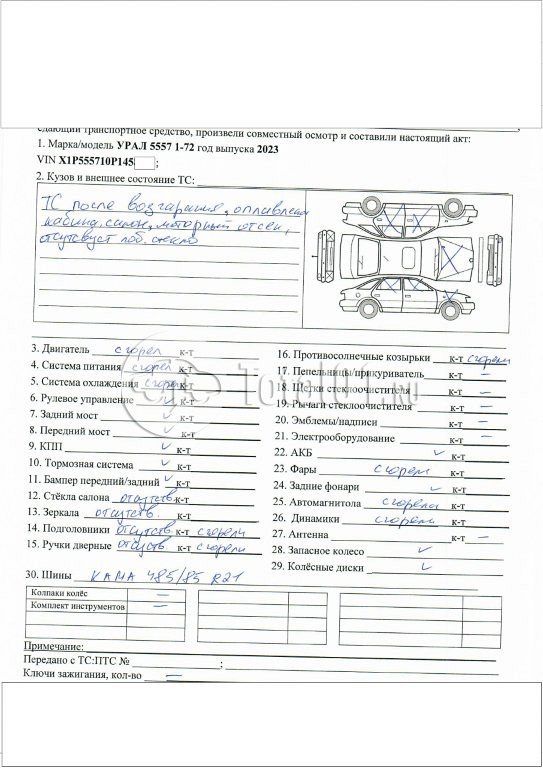 едающий транспортное средство, произвели совместный осмотр и составили настоящий акт:
1. Марка/модель УРАЛ 5557 1-72 год выпуска 2023
VIN X1P555710P145 ;
2. Кузов и внешнее состояние ТС:
ТС после возгарания, оплавлена
кабина, салон, моторный отсек,
отсутсвует лоб. стекло
3. Двигатель сгорел к-т
4. Система питания сгорел к-т
5. Система охлаждения сгорел к-т
6. Рулевое управление к-т
7. Задний мост ✓ к-т
8. Передний мост ✓ к-т
9. КПП ✓ к-т
10. Тормозная система ✓ к-т
11. Бампер передний/задний ✓ к-т
12. Стёкла салона отсутств. к-т
13. Зеркала отсутств. к-т
14. Подголовники отсутств к-т сгорели
15. Ручки дверные отсутств. к-т сгорели
16. Противосолнечные козырьки к-т сгорели
17. Пепельницы/прикуриватель к-т –
18. Щетки стеклоочистителя к-т –
19. Рычаги стеклоочистителя к-т –
20. Эмблемы/надписи к-т –
21. Электрооборудование к-т –
22. АКБ ✓ к-т
23. Фары сгорели к-т
24. Задние фонари ✓ к-т
25. Автомагнитола сгорела к-т
26. Динамики сгорели к-т
27. Антенна к-т –
28. Запасное колесо ✓
29. Колёсные диски ✓
30. Шины КАМА 485/85 R21
Колпаки колёс –
Комплект инструментов –
Примечание:
Передано с ТС:ПТС № ;
Ключи зажигания, кол-во –